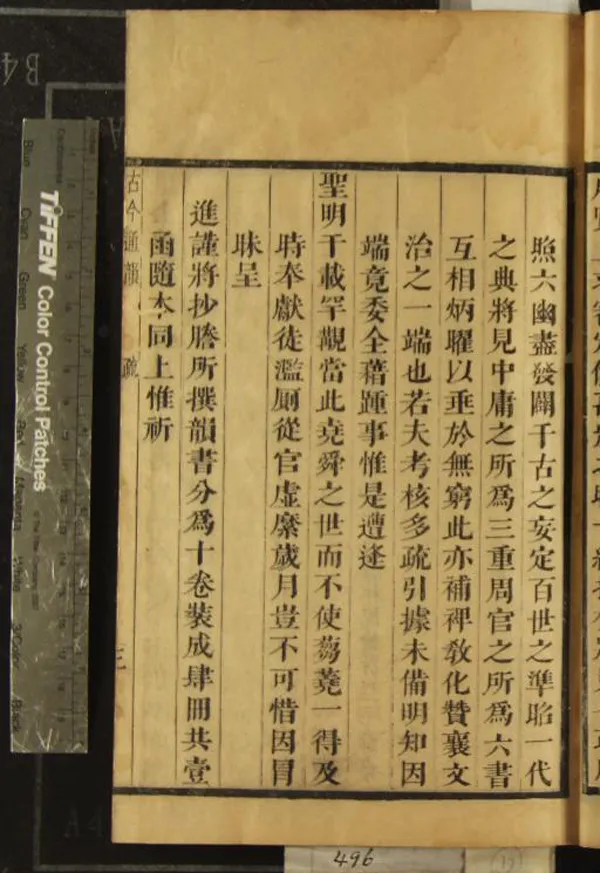 照六幽盡發闢千古之妄定百世之準昭一代
之典將見中庸之所爲三重周官之所爲六書
互相炳曜以垂於無窮此亦補裨敎化贊襄文
治之一端也若夫考核多疏引據未備明知因
端竟委全藉踵事惟是遭逢
聖明千載罕觀當此堯舜之世而不使芻蕘一得及
時奉獻徒濫厠從官虛縻歲月豈不可惜因冒
昧呈
進謹將抄謄所撰韻書分爲十卷裝成肆冊共壹
函隨本同上惟祈
古今通韻 疏 三
TIFFEN Color Control Patches
Blue Cyan Green Yellow Red Magenta White 3/Color Black
B4
A4
496